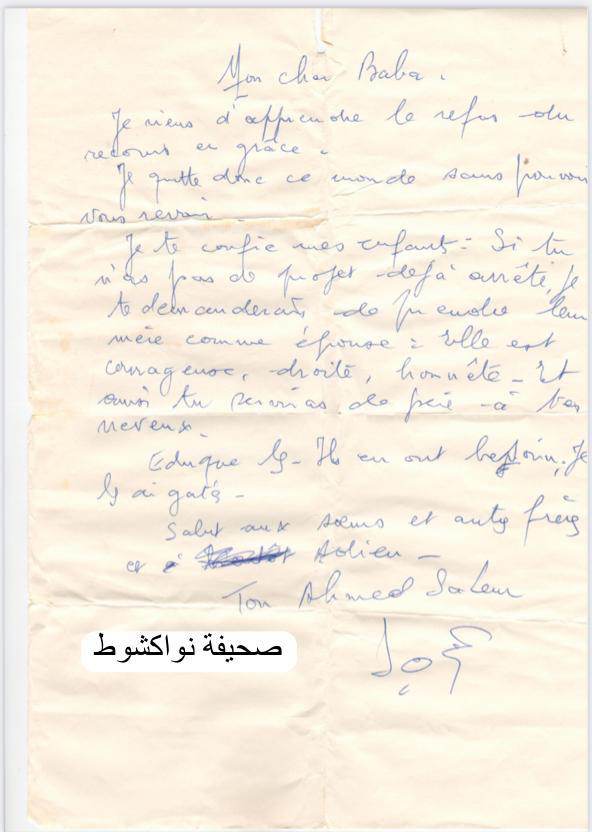 Mon cher Baba.
Je viens d'apprendre le refus du
recours en grâce.
Je quitte donc ce monde sans pouvoir
vous revoir.
Je te confie mes enfants : Si tu
n'as pas de projet déjà arrêté, je
te demanderais de prendre leur
mère comme épouse : Elle est
courageuse, droite, honnête - Et
ainsi tu serviras de père à tes
neveux.
Eduque les - Ils en ont besoin. Je
les ai gatés -
Salut aux sœurs et autres frères
et à Adieu -
Ton Ahmed Salem
صحيفة نواكشوط